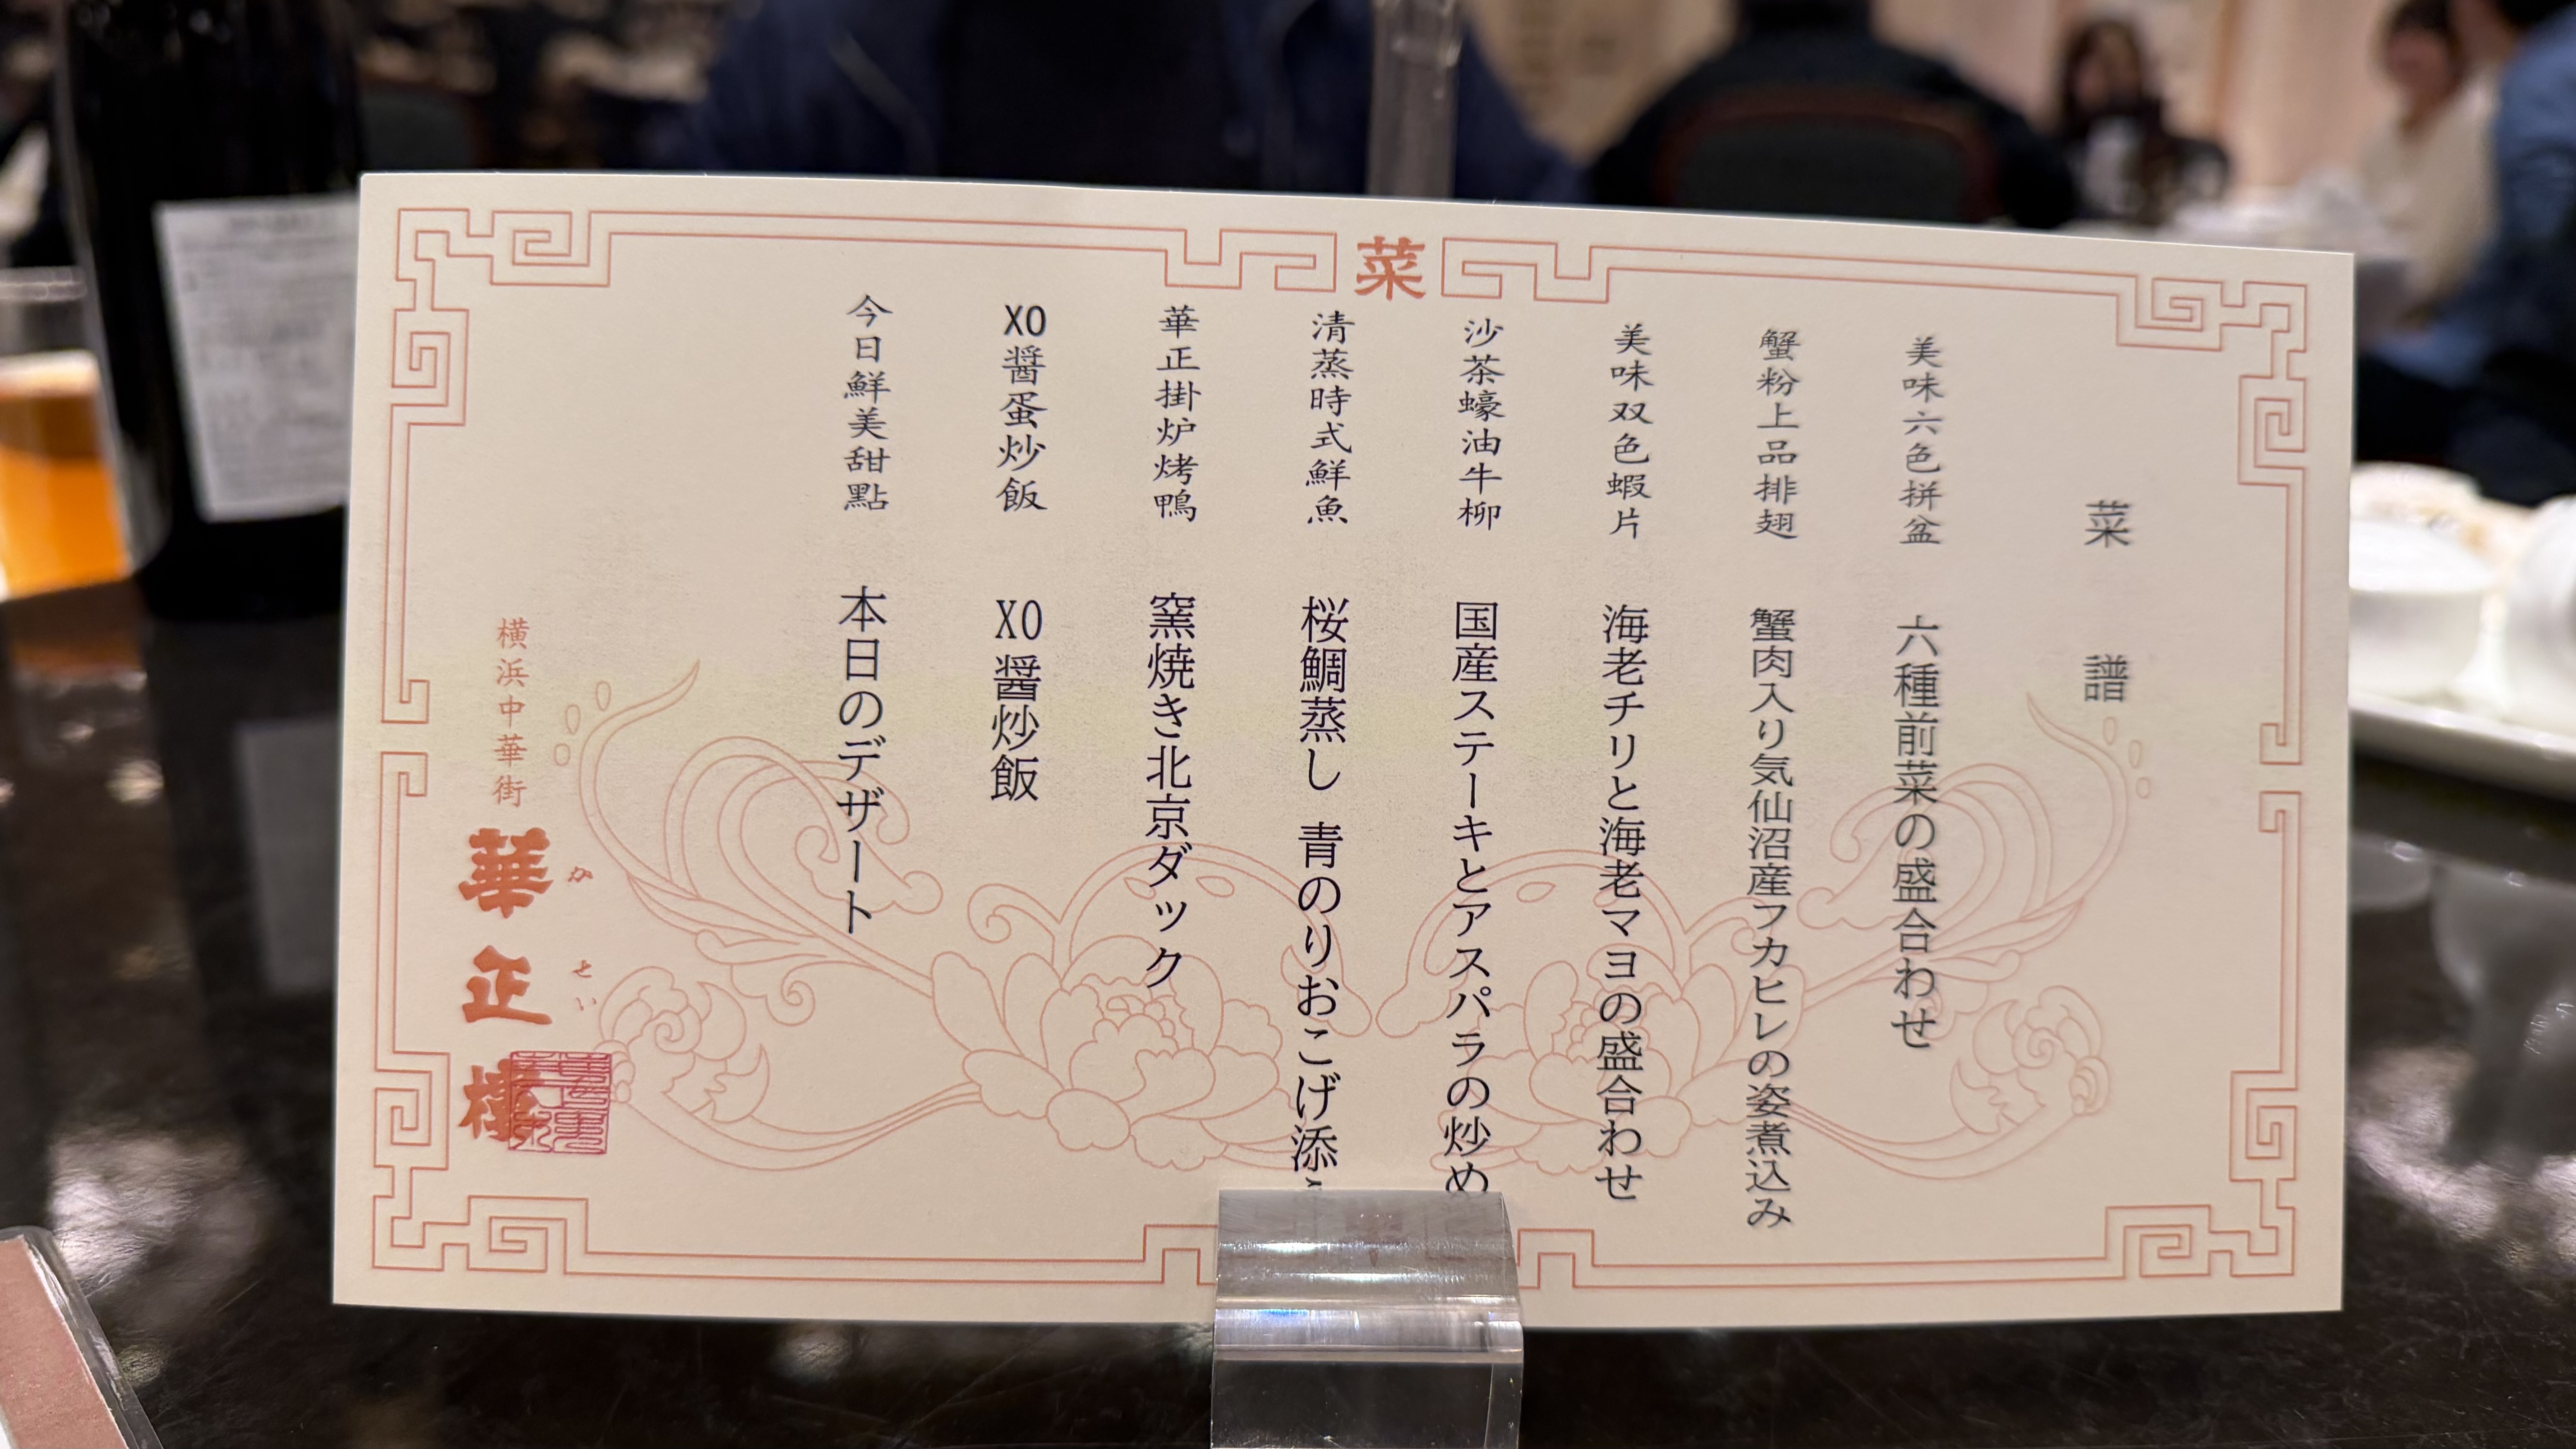 菜
菜譜
美味六色拼盆　六種前菜の盛合わせ
蟹粉上品排翅　蟹肉入り気仙沼産フカヒレの姿煮込み
美味双色蝦片　海老チリと海老マヨの盛合わせ
沙茶蠔油牛柳　国産ステーキとアスパラの炒め
清蒸時式鮮魚　桜鯛蒸し　青のりおこげ添
華正掛炉烤鴨　窯焼き北京ダック
XO醤蛋炒飯　XO醤炒飯
今日鮮美甜點　本日のデザート
横浜中華街
華正樓
かせい